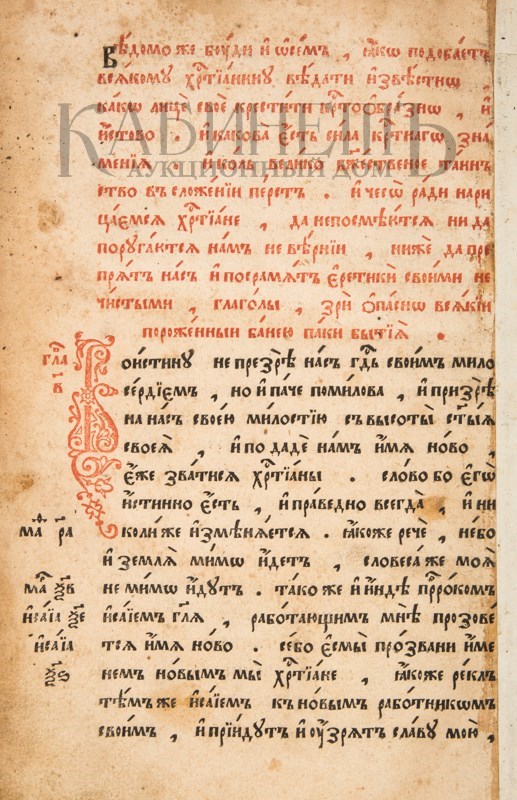 вѣ́домо же бꙋ́ди и҆ ѡ҆ се́мъ , ꙗ҆́кѡ подоба́етъ
всѧ́комꙋ хрⷭ҇тїа́нинꙋ вѣ́дати и҆звѣ́стнѡ ,
ка́кѡ лицѐ своѐ крести́ти крⷭ҇тоѡбра́знѡ , и҆
и҆́стово . и҆ какова̀ є҆́сть си́ла крⷭ҇тнагѡ зна́
менїѧ . и҆ ко́ль вели́ко бж҃е́ственое та́ин
ство въ сложе́нїи пе́рстъ . и҆ чесѡ̀ ра́ди нари
ца́емсѧ хрⷭ҇тїа́не , да непосмѣю́тсѧ ни да
порꙋга́ютсѧ на́мъ не вѣ́рнїи , ни́же да пре
прѧ́тъ на́съ и҆ посра́мѧтъ є҆ретикѝ свои́ми не
чи́стыми , глаго́лы , зрѝ ѻ҆па́снѡ всѧ́кїи
порожде́нныи ба́нею па́ки бытїѧ̀ .
гла̀ в҃
Пои́стинꙋ не презрѣ̀ на́съ гдⷭ҇ь свои́мъ мило
се́рдїемъ , но и҆ па́че поми́лова , и҆ призрѣ̀
на на́съ свое́ю ми́лостїю съ высоты̀ ст҃ы́ѧ
своеѧ̀ , и҆ по дадѐ на́мъ и҆́мѧ но́во ,
є҆́же зва́тисѧ хрⷭ҇тїа́ны . сло́во бо є҆гѡ̀
и҆́стинно є҆́сть , и҆ пра́ведно всегда̀ , и҆ ни
коли́ же и҆змѣнѧ́етсѧ . ꙗ҆́коже речѐ , не́бо
маⷴ҇ р҃а
и҆ землѧ̀ ми́мѡ и҆́детъ , словеса́ же моѧ̀
не ми́мѡ и҆́дꙋтъ . та́ко же и҆ и҆ндѣ̀ прⷪ҇ро́комъ
и҆са́їемъ гл҃ѧ , рабо́тающимъ мнѣ̀ прозове́
и҆са́їа ѯ҃е
тсѧ и҆́мѧ но́во . се́бо є҆смы̀ про́звани и҆́ме
и҆са́їа
немъ но́вымъ мы̀ хрⷭ҇тїа́не , ꙗ҆́коже реклъ
ѯ҃ѕ
тѣ́мъ же и҆са́їемъ къ но́вымъ рабо́тникѡмъ
свои́мъ , и҆ прїи́дꙋтъ и҆ ᲂу҆́зрѧтъ сла́вꙋ мою̀ ,
КАБИНЕТЪ
АУКЦИОННЫЙ ДОМ